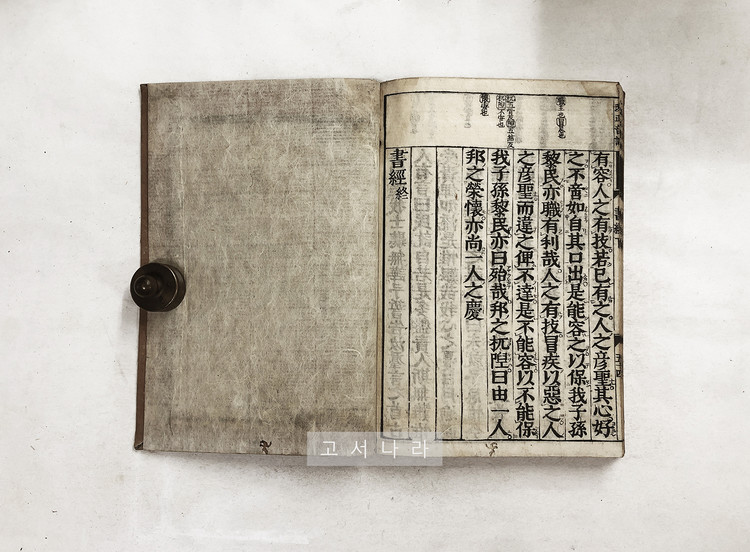 有容人之有技若已有之人之彦聖其心好
之不啻如自其口出是能容之以保我子孫
黎民亦職有利哉人之有技冒疾以惡之人
之彦聖而違之俾不達是不能容以不能保
我子孫黎民亦曰殆哉邦之杌隉曰由一人
邦之榮懷亦尚一人之慶
書經終
고서나라